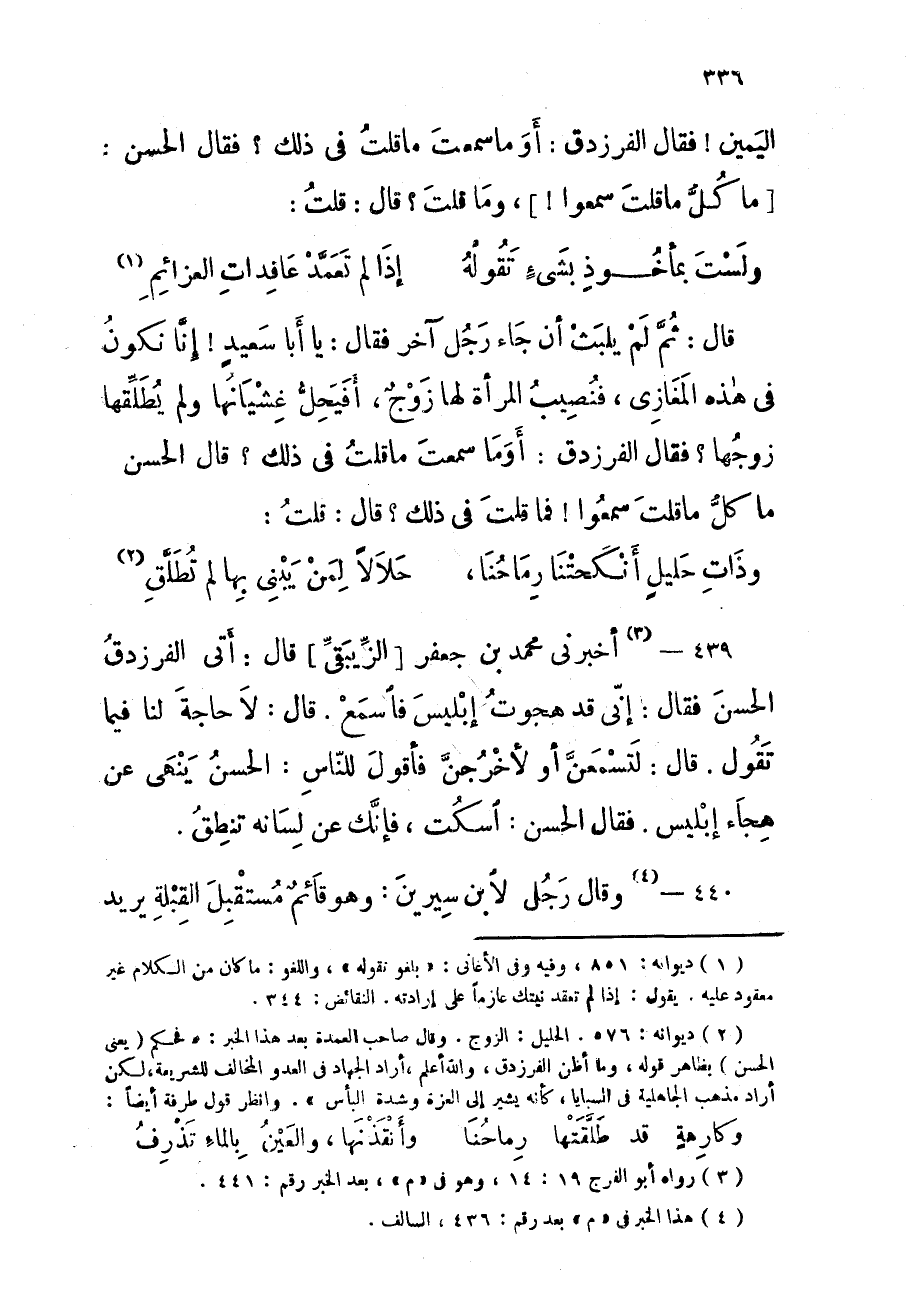 ٣٣٦
اليَمين ! فقال الفرزدق : أَوَ ماسمعتَ ماقلتُ فى ذلك ؟ فقال الحسن :
[ ما كُلُّ ماقلتَ سمعوا ! ] ، ومَا قلتَ ؟ قال : قلتُ :
ولَسْتَ بمأخُـــوذٍ بشَىءٍ تَقُولُهُ إذَا لم تَعَمَّدْ عَاقِداتِ العزائِمِ (١)
قال : ثُمَّ لَمْ يلبَثْ أن جَاء رَجُل آخر فقال : يا أَبا سَعيدٍ ! إنَّا نكونُ
فى هٰذه المَغَازِى ، فنُصِيبُ المرأة لها زَوْجٌ ، أَفيَحِلُّ غِشْيَانُها ولم يُطَلِّقها
زوجُها ؟ فقال الفرزدق : أَوَمَا سمعتَ ماقلتُ فى ذلك ؟ قال الحسن
ما كلُّ ماقلتَ سمعُوا ! فما قلتَ فى ذلك ؟ قال : قلتُ :
وذَاتِ حَليلٍ أَنْكَحتْنَا رِمَاحُنَا ، حَلَالاً لِمَنْ يَبْنِى بِها لم تُطَلَّقِ (٢)
٤٣٩ — (٣) أخبرنى محمد بن جعفر [ الزِّيبَقىّ ] قال : أَتى الفرزدقُ
الحسنَ فقال : إنّى قد هجوتُ إبْليسَ فٱسمَعْ . قال : لاَ حاجةَ لنا فيما
تَقُول . قال : لَتسْمَعَنَّ أو لأخْرُجنَّ فأقولَ للنّاسِ : الحسنُ يَنْهَى عن
هِجاَء إبْليس . فقال الحسن : ٱسكُت ، فإنَّك عن لِسَانه تنطِقُ .
٤٤٠ — (٤) وقال رَجُلٌ لأبن سِيرينَ : وهو قَائمٌ مُستقْبِلَ القِبْلةِ يريد
( ١ ) ديوانه : ٨٥١ ، وفيه وفى الأغانى : « بلغو تقوله » ، واللغو : ما كان من الكلام غير
معقود عليه . يقول : إذا لم تعقد نيتك عازماً على إرادته . النقائض : ٣٤٤ .
( ٢ ) ديوانه : ٥٧٦ . الحليل : الزوج . وقال صاحب العمدة بعد هذا الخبر : « فحكم ( يعنى
الحسن ) بظاهر قوله ، وما أظن الفرزدق ، والله أعلم ، أراد الجهاد فى العدو المخالف للشريعة ، لكن
أراد مذهب الجاهلية فى السبايا ، كأنه يشير إلى العزة وشدة البأس » . وانظر قول طرفة أيضاً :
وكارِهةٍ قد طَلَّقَتْها رِماحُنَا وأَنْقَذْنَها ، والعَيْنُ بِالماءِ تَذْرِفُ
( ٣ ) رواه أبو الفرج ١٩ : ١٤ ، وهو فى « م » ، بعد الخبر رقم : ٤٤١ .
( ٤ ) هذا الخبر فى « م » بعد رقم : ٤٣٦ ، السالف .